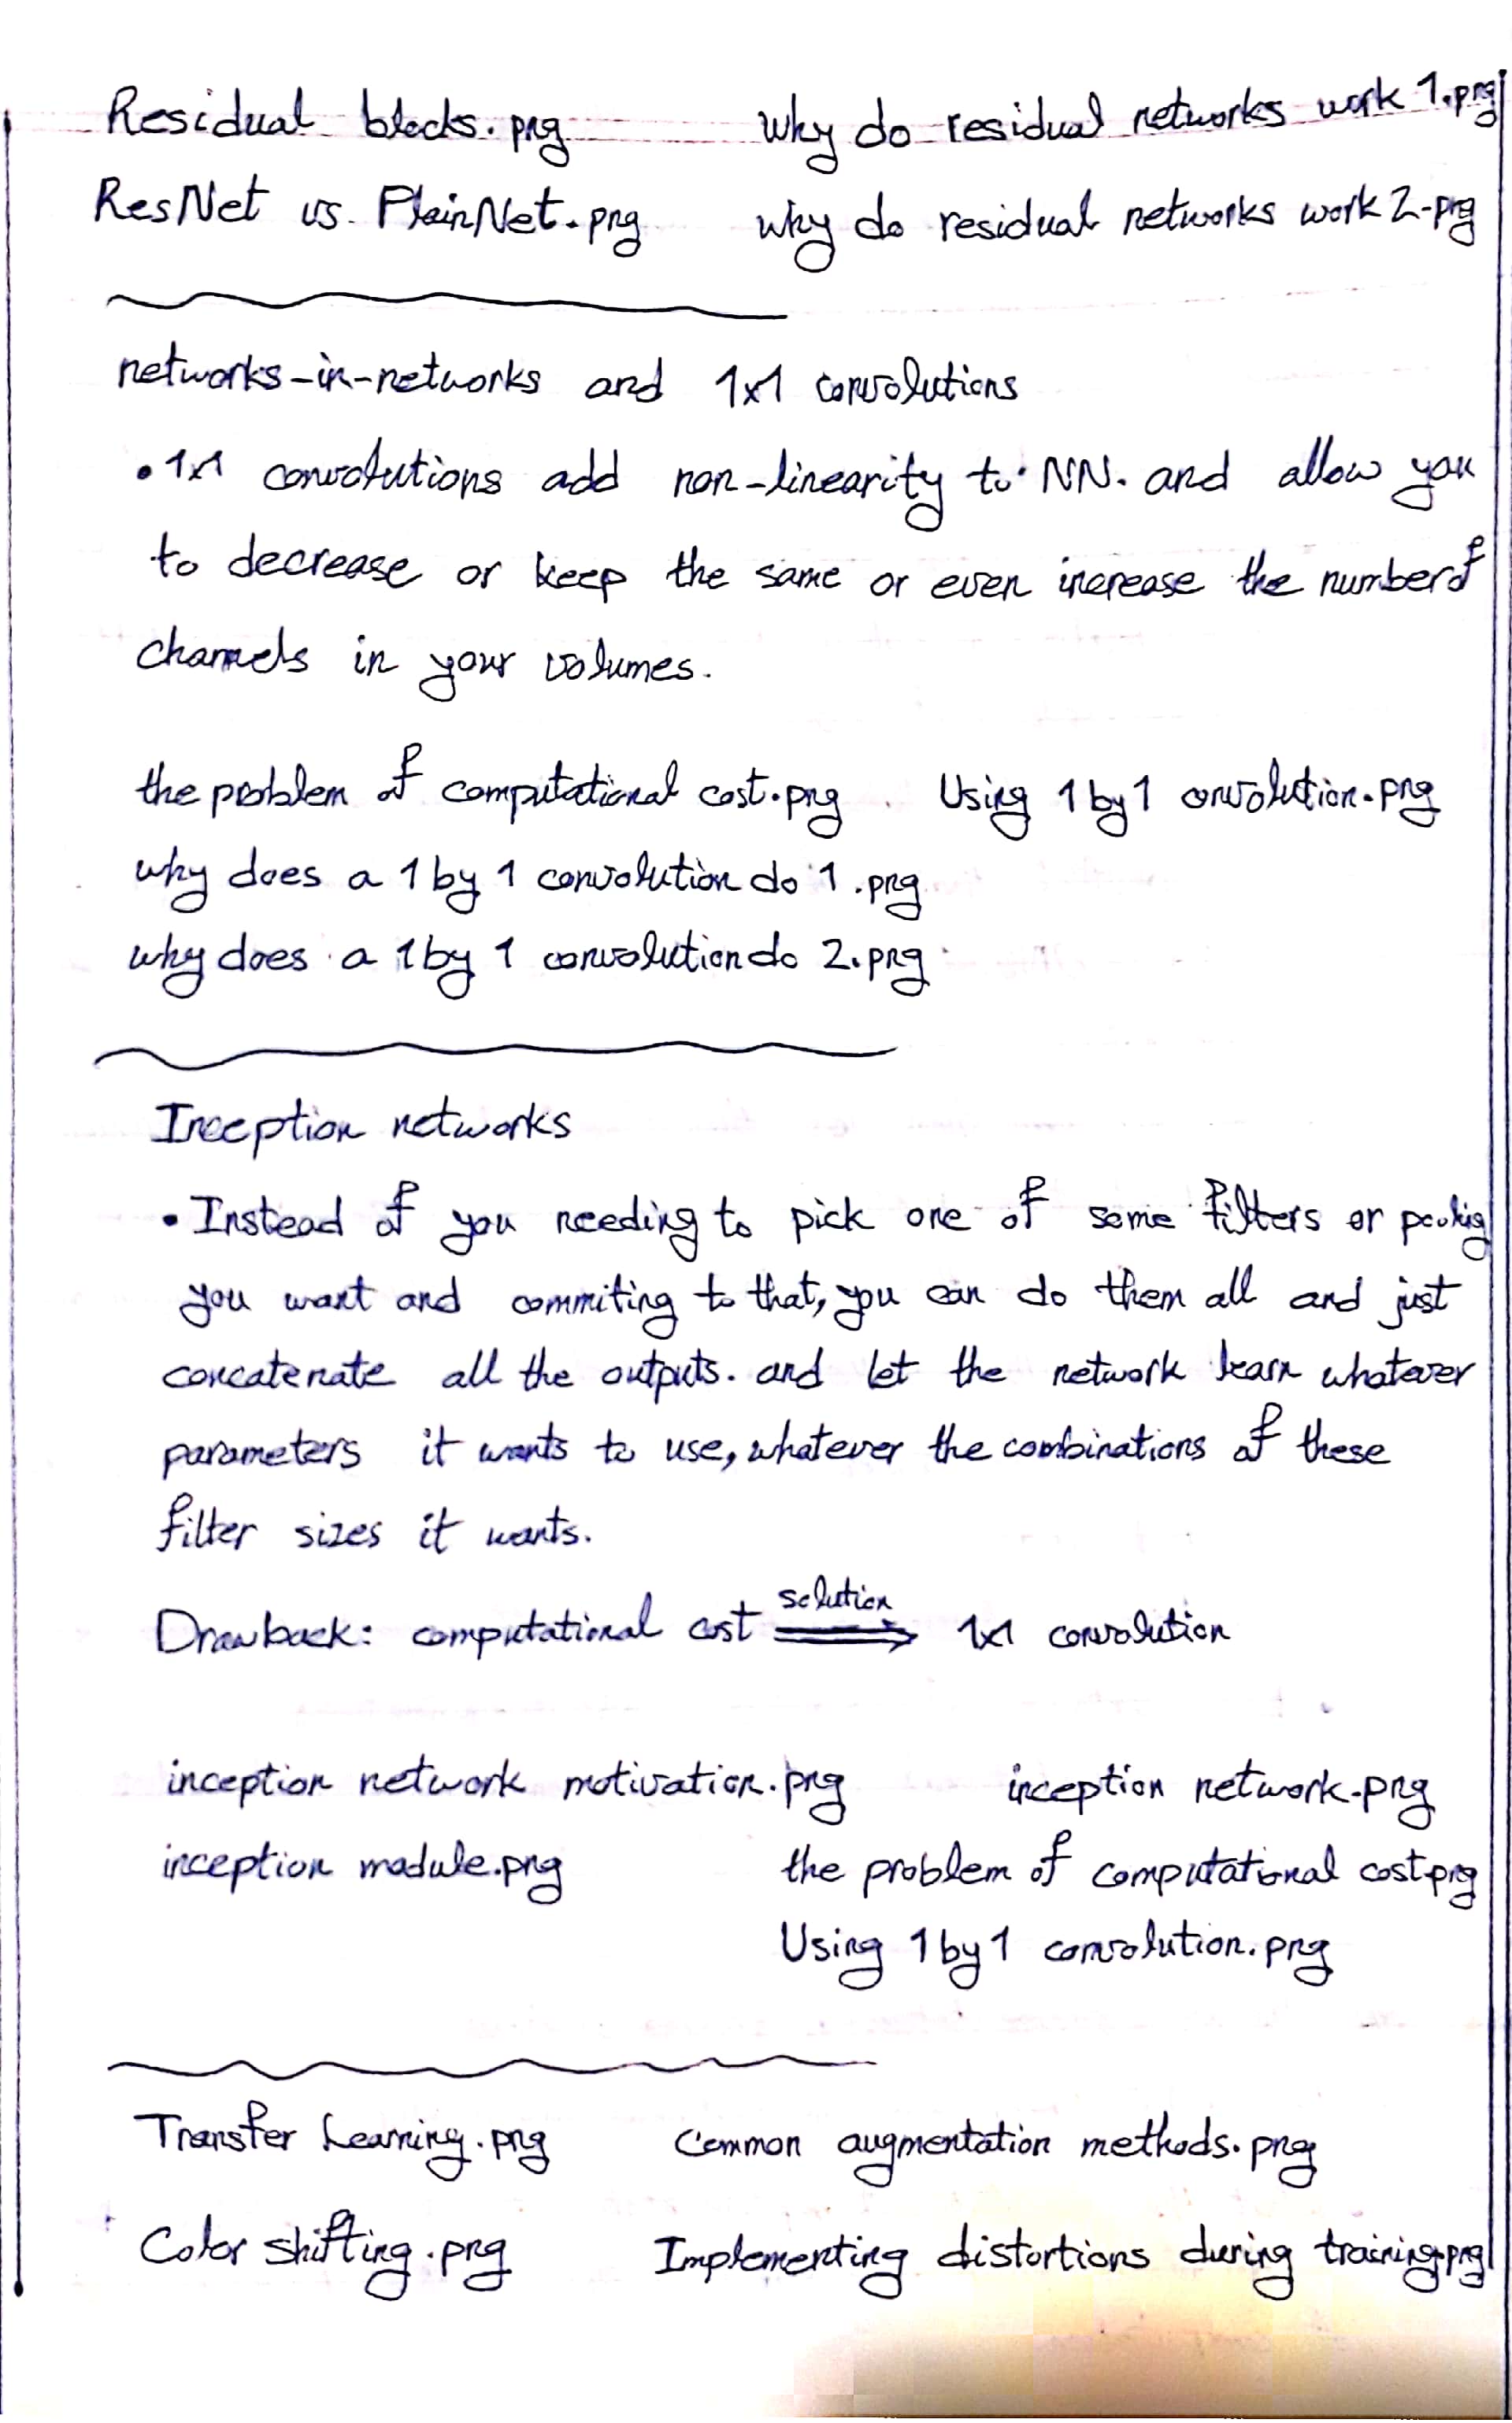 Residual blocks.png why do residual networks work 1.png
ResNet vs. PlainNet.png why do residual networks work 2.png
networks-in-networks and 1x1 convolutions
• 1x1 convolutions add non-linearity to NN. and allow you
to decrease or keep the same or even increase the number of
channels in your volumes.
the problem of computational cost.png Using 1 by 1 convolution.png
why does a 1 by 1 convolution do 1.png
why does a 1 by 1 convolution do 2.png
Inception networks
• Instead of you needing to pick one of some filters or pooling
you want and commiting to that, you can do them all and just
concatenate all the outputs. and let the network learn whatever
parameters it wants to use, whatever the combinations of these
filter sizes it wants.
Drawback: computational cost solution ⟹ 1x1 convolution
inception network motivation.png inception network.png
inception module.png the problem of computational cost.png
Using 1 by 1 convolution.png
Transfer Learning.png Common augmentation methods.png
Color shifting.png Implementing distortions during training.png